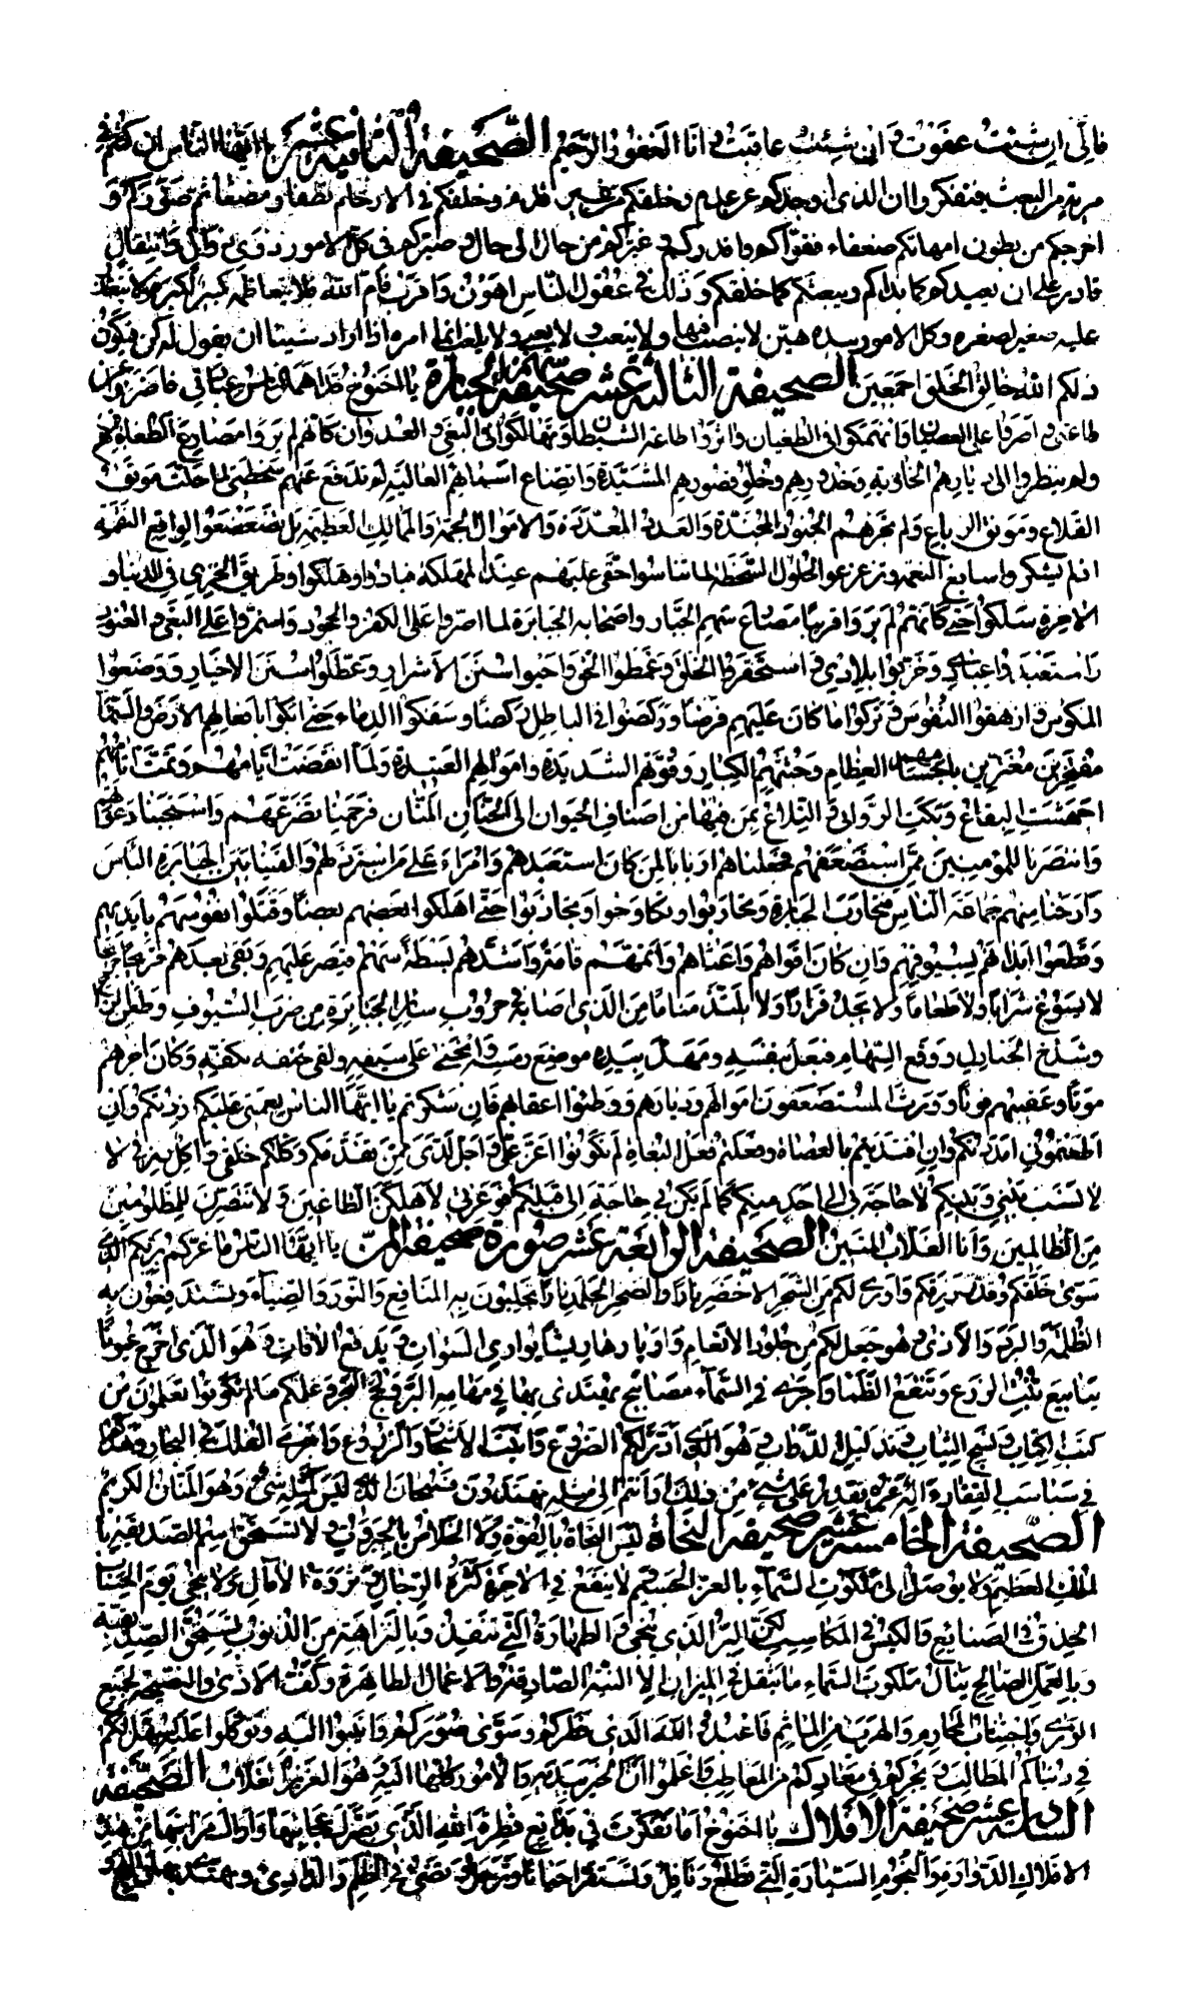 فانی ان شئت عفوت و ان شئت عاقبت و انا الغفور الرحیم الصحیفة الثانیة عشر یا ایها الناس ان کنتم فی
مریة من البعث فتفکروا ان الذی اوجدکم عن عدم و خلقکم من غیر قدم و خلقکم فی الارحام نطفا و مضغا ثم صورکم و
اخرجکم من بطون امهاتکم ضعفاء فقواکم و اقدرکم و غیرکم من حال الی حال و صیرکم فی کل الامور ذوی زوال و انتقال
قادر علی ان یعیدکم کما بداکم و یبعثکم کما خلقکم و ذلک فی عقول الناس اهون و اقرب فاما الله فلا یتعاظمه کبیر لکبره و لا یتعذر
علیه صغیر لصغره و کل الامور بیده هین لا ینصب فیها و لا یتعب و لا یعیی و لا یلغب انما امره اذا اراد شیئا ان یقول له کن فیکون
ذلکم الله خالق الخلق اجمعین الصحیفة الثالثة عشر صحیفة الجبابرة یا اخنوخ قد اهملنا الناس عبادی فاضربوا عن
طاعتی و اصروا علی العصیان و انهمکوا فی الطغیان و اثروا طاعة الشیطان و تهالکوا فی البغی و العدوان کانهم لم یروا مصارع الطغاة من قبلهم
و لم ینظروا الی دیارهم الخاویة و خدورهم و خلو قصورهم المشیدة و اتضاع اسمائهم العالیة لم تدفع عنهم سخطی لما حلت موثقات
القلاع و مونق الرباع و لم تجرهم الجنود المجندة و العدة المعددة و الاموال الجمة و الممالک العظیمة بل تضعضعوا لواقع النقمة
اذ لم یشکروا سابغ النعمة و تزعزعوا لحلول السخط لما تناسوا حقی علیهم عند المهلکة فبادوا و هلکوا و طریق الخزی فی الدنیا و
الاخرة سلکوا حتی کانهم لم یروا قریبا مصارع سهم الجبار و اصحابه الجبابرة لما اصروا علی الکفر و الجحود و استمروا علی البغی و العنود
و استعبدوا عبادی و خربوا بلادی و استحقروا الخلق و غمطوا الحق و احیوا سنن الاشرار و عطلوا سنن الاخیار و وضعوا
المکوس و ازهقوا النفوس و ترکوا ما کان علیهم فرضا و رکضوا فی الباطل رکضا و سفکوا الدماء حتی ابکوا بافعالهم الارض و السماء
مفتخرین مغترین باجسامهم العظام و جثثهم الکبار و قوتهم الشدیدة و اموالهم العتیدة و لما انقضت ایامهم و تمت اثامهم
اجهشت البقاع و بکت الروابی و التلاع بمن فیها من اصناف الحیوان الی الحنان المنان فرحمنا تضرعهم و استجبنا دعواهم
و انتصرنا للمومنین ممن استضعفهم فجعلناهم اربابا لمن کان استعبدهم و امراء علی من استرذلهم و القینا بین الجبابرة الباس
و ارحنا منهم جماعة الناس فتحارب الجبابرة و تحاربوا و تکاوحوا و تجاذبوا حتی اهلک بعضهم بعضا و قتلوا نفوسهم بایدیهم
و قطعوا ابدانهم بسیوفهم و ان کان اقواهم و اعتاهم و اتمهم قامة و اشدهم بسطة سهم فیصر علیهم و بقی بعدهم
لا یسوغ شرابا و لا طعاما و لا یجد قرارا و لا یلتذ مناما من الذی اصابه فی حروب سائر الجبابرة من ضرب السیوف و طعن
و شدخ الجنادل و وقع السهام فقتل نفسه و مهد بیده موضع رمسه و انحنی علی سیفه و لقی حتفه بکفه و کان اخرهم
موتا و عقبهم فوتا و ورث المستضعفون اموالهم و دیارهم و وطئوا اعقابهم فان شکرتم یا ایها الناس نعمتی علیکم زدتکم و ان
اطعتمونی امددتکم و ان اقتدیتم بالعصاة و فعلتم فعل البغاة لم تکونوا اعز علی و اجل لدی ممن تقدمکم و کلکم خلقی و اکل رزقی لا
لا نسب بینی و بینکم لا حاجة لی الی احد منکم کما لم یکن لی حاجة الی قبلکم فو عزتی لاهلکن الطاغین و لانتصرن للمظلومین
من الظالمین و انا الغلاب المتین الصحیفة الرابعة عشر صورة صحیفة المن یا ایها الناس ما غرکم بربکم الذی
سوی خلقکم و قدر رزقکم و اوری لکم من الشجر الاخضر نارا و الصخر الجلمد نارا تجلبون به المنافع و النور و الضیاء و تستدفعون به
الظلمة و البرد و الاذی و هو جعل لکم من جلود الانعام و اوبارها ریشا یواری السوات و یدفع الافات و هو الذی اخرج عیونا
ینابیع تنبت الزرع و تنقع الظما و اجری فی السماء مصابیح یهتدی بها فی مهامه البر و لجج البحر و علمکم ما لم تکونوا تعلمون من
کتب الکتاب و نسج الثیاب و تذلیل الدواب و هو الذی ادر لکم الضروع و انبت الاشجار و الزروع و اجری الفلک فی البحار و هداکم
فی سباسب القفار ء اله غیره یقدر علی شیء من ذلک او انتم الی مثله تهتدون فسبحان الله لیس کمثله شیء و هو المنان الکریم
الصحیفة الخامسة عشر صحیفة النجاة لیس النجاة بالقوة و لا الخلاص بالجبروت و لا تستحق اسم الصدیقیة با
لملک العظیم و لا یوصل الی ملکوت السماء بالعز الجسیم لا ینفع فی الاخرة کثرة الرجال و ثروة الامال و لا ینجی یوم الحساب
الحذق فی الصنائع و الکیس فی المکاسب لکن البر الذی ینجی و الطهارة التی تنقذ و بالنزاهة من الذنوب یستحق الصدیقیة
و بالعمل الصالح ینال ملکوت السماء ما یثقل فی المیزان الا النیة الصادقة و الاعمال الطاهرة و کف الاذی و النصیحة لجمیع
الوری و اجتناب المحارم و الهرب من الماثم فاعبدوا الله الذی فطرکم و سوی صورکم و انیبوا الیه و توکلوا علیه یسهل لکم
فی دنیاکم المطالب و یجرکم فی معادکم من المعاطب و اعلموا ان الخیر بیده و الامور کلها الیه و هو العزیز الغلاب الصحیفة
السادسة عشر صحیفة الافلاک یا اخنوخ اما تفکرت فی بدائع فطرة الله الذی بصرک عجائبها و اراک مراتبها من هذه
الافلاک الدوارة و النجوم السیارة التی تطلع و تافل و تستقر احیانا و ترحل و تضیء فی الظلم و الدادی و یهتدی بها فی اللجج